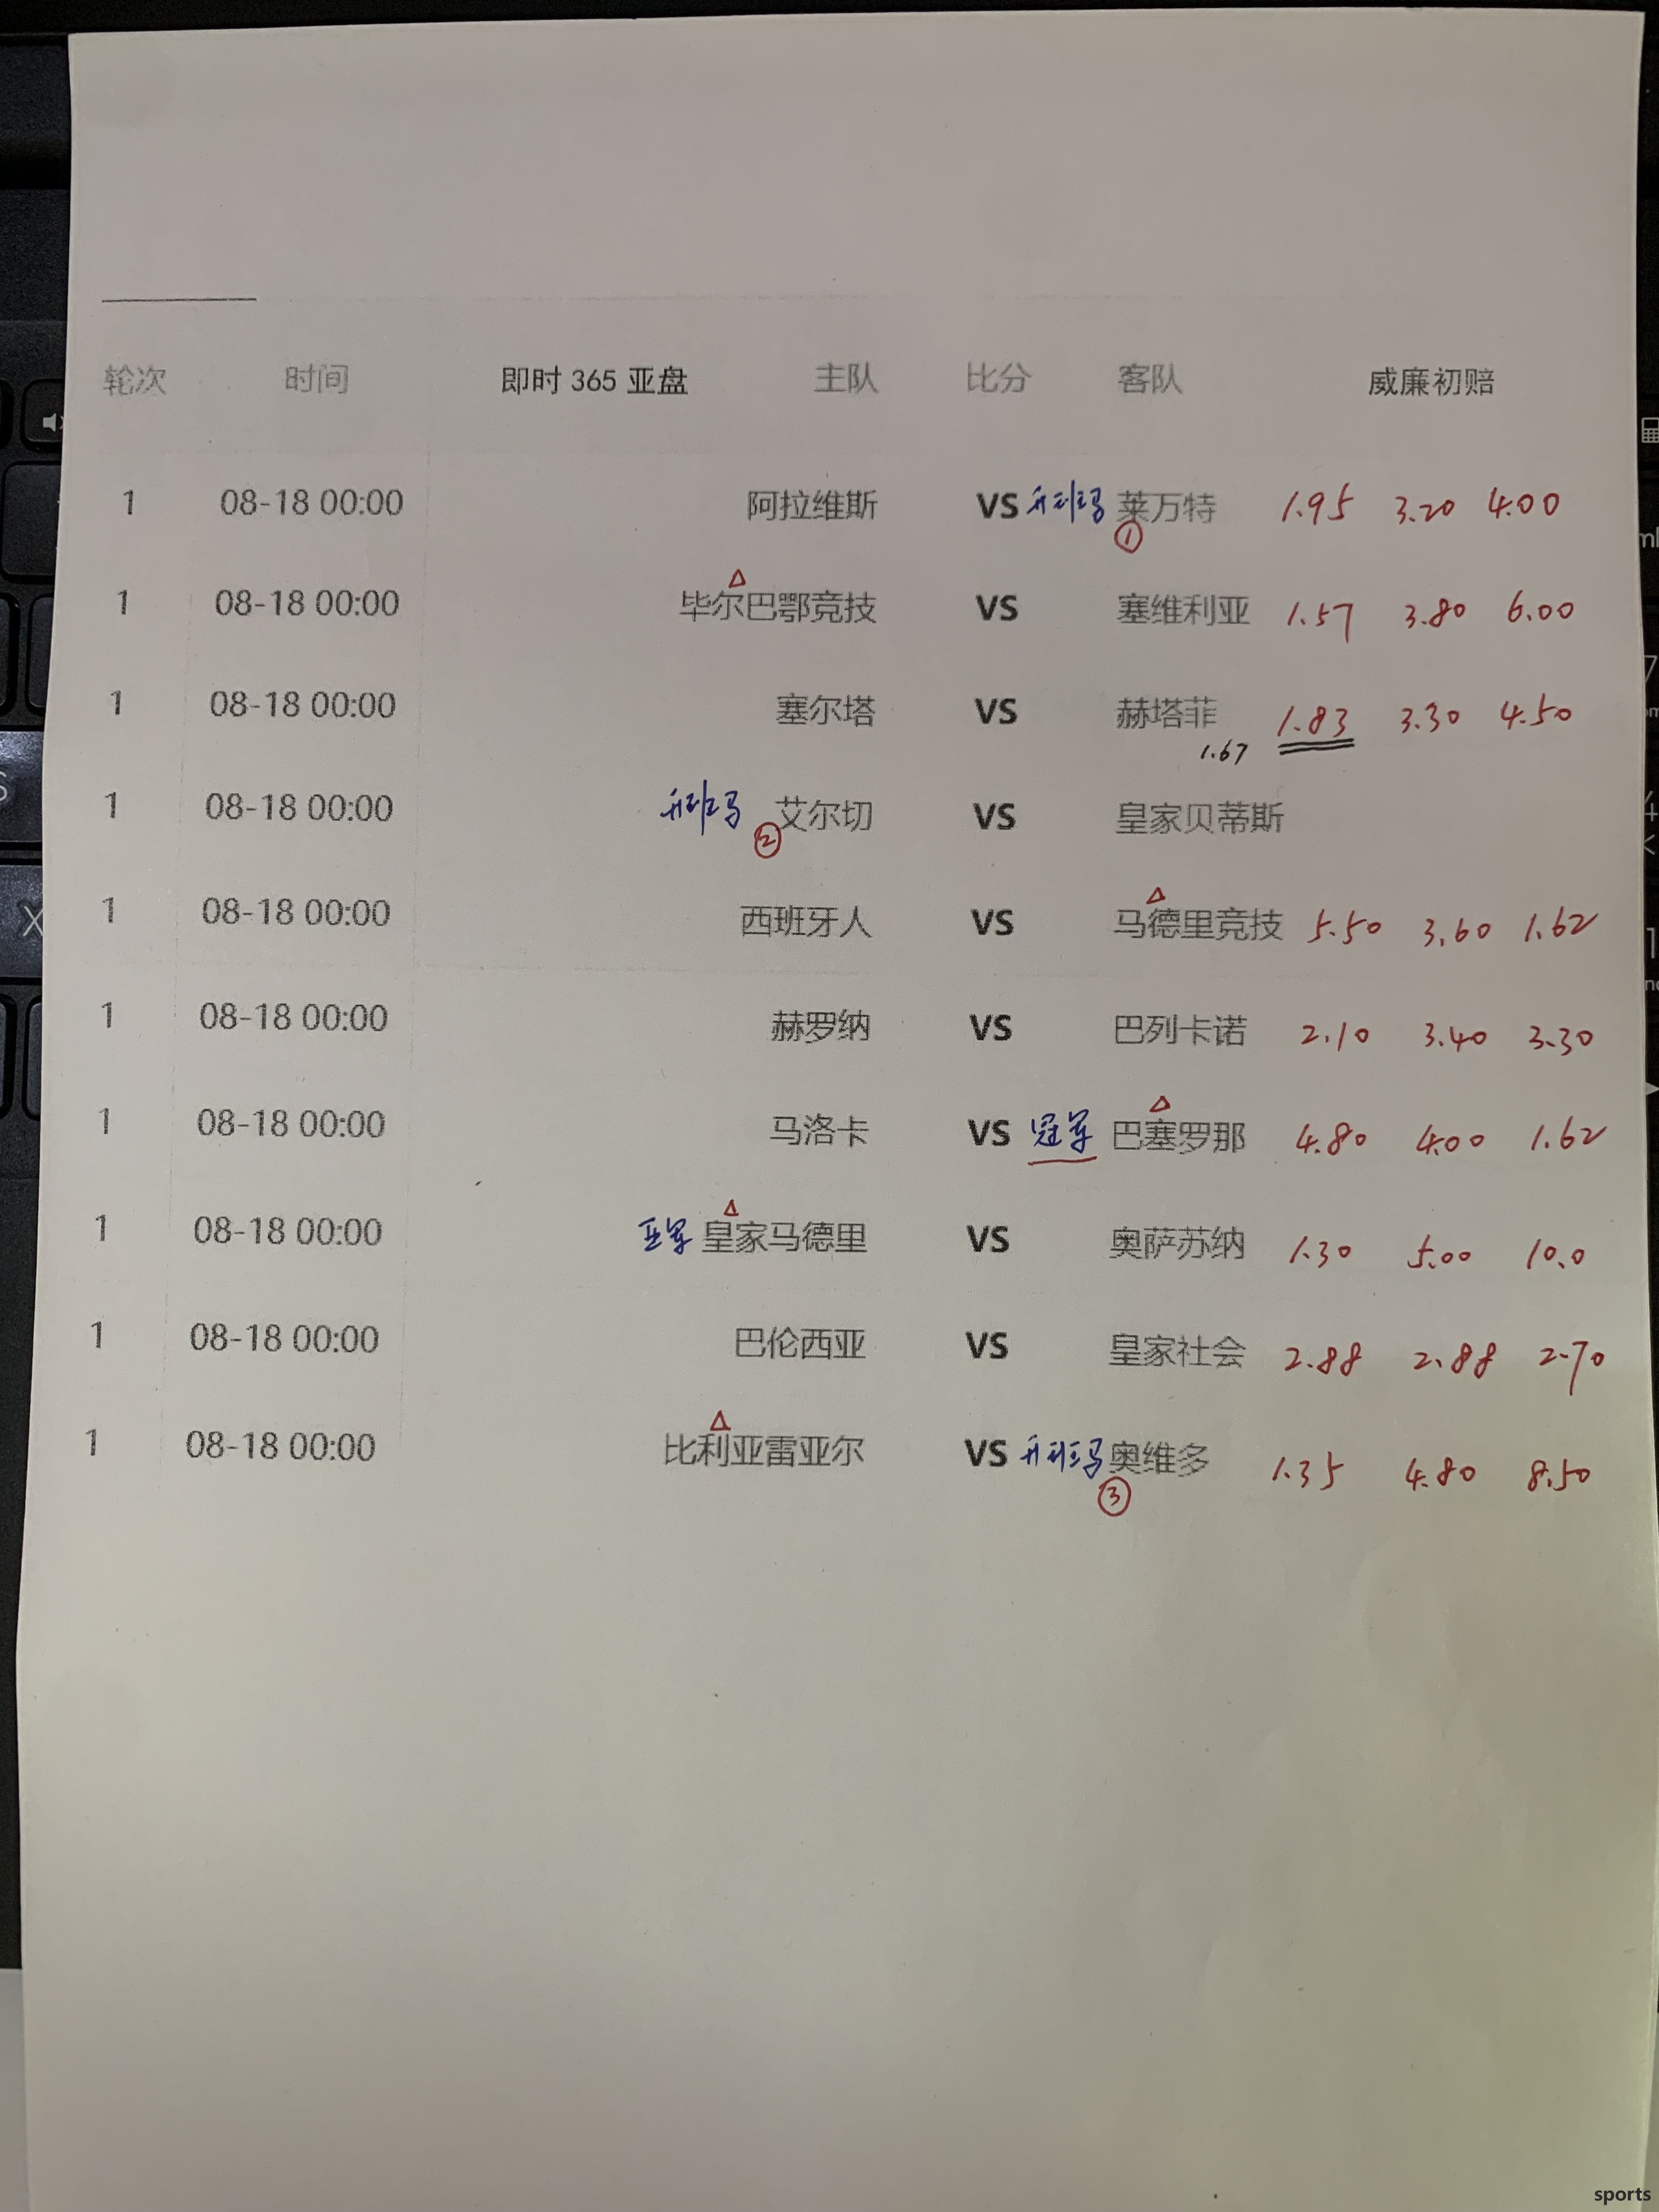 轮次 时间 即时 365 亚盘 主队 比分 客队 威廉初赔
1 08-18 00:00 阿拉维斯 VS 升班马 莱万特 1.95 3.20 4.00
①
△
1 08-18 00:00 毕尔巴鄂竞技 VS 塞维利亚 1.57 3.80 6.00
1 08-18 00:00 塞尔塔 VS 赫塔菲 1.83 3.30 4.50
1.67
1 08-18 00:00 升班马 艾尔切 VS 皇家贝蒂斯
②
△
1 08-18 00:00 西班牙人 VS 马德里竞技 5.50 3.60 1.62
1 08-18 00:00 赫罗纳 VS 巴列卡诺 2.10 3.40 3.30
△
1 08-18 00:00 马洛卡 VS 冠军 巴塞罗那 4.80 4.00 1.62
△
1 08-18 00:00 亚军 皇家马德里 VS 奥萨苏纳 1.30 5.00 10.0
1 08-18 00:00 巴伦西亚 VS 皇家社会 2.88 2.88 2.70
△
1 08-18 00:00 比利亚雷亚尔 VS 升班马 奥维多 1.35 4.80 8.50
③
sports